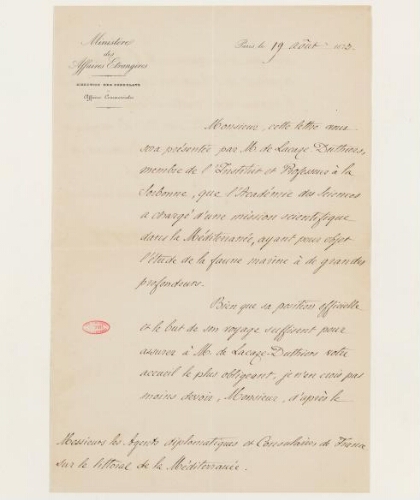 Ministère
des
Affaires Etrangères
DIRECTION DES CONSULATS
Affaires Commerciales
Paris, le 19 Août
Monsieur, cette lettre vous
sera présentée par M. de Lacaze Duthiers,
membre de l'Institut et Professeur à la
Sorbonne, que l'Académie des Sciences
a chargé d'une mission scientifique
dans la Méditerranée, ayant pour objet
l'étude de la faune marine à de grandes
profondeurs.
Bien que sa position officielle
et le but de son voyage suffisent pour
assurer à M. de Lacaze-Duthiers votre
accueil le plus obligeant, je n'en crois pas
moins devoir, Monsieur, d'après le
Messieurs les Agents diplomatiques et Consulaires de France
sur le littoral de la Méditerranée.